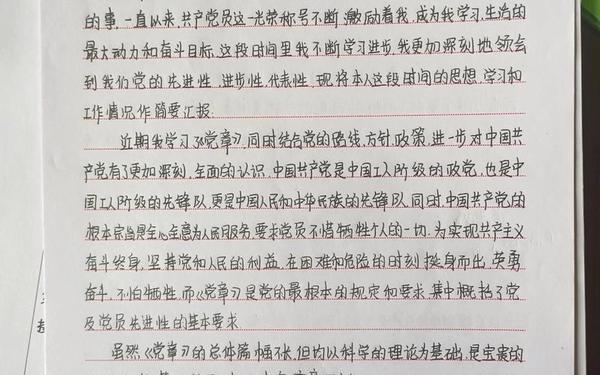 的事,一直以来,共产党员这一光荣称号不断激励着我,成为我学习,生活的
最大动力和奋斗目标,这段时间里我不断学习进步,我更加深刻地领会
到我们党的先进性,进步性,代表性,现将本人这段时间的思想,学习和
工作情况作简要汇报:
近期我学习了《党章》,同时结合党的路线,方针,政策,进一步对中国共
产党有了更加深刻,全面的认识,中国共产党是中国工人阶级的政党,也是中
国工人阶级的先锋队,更是中国人民和中华民族的先锋队,同时,中国共产党的
根本宗旨是全心全意为人民服务,要求党员不惜牺牲个人的一切,为实现共产主义
奋斗终身,坚持党和人民的利益,在困难和危险的时刻挺身而出,英勇
奋斗,不怕牺牲,而《党章》是党的最根本的规定和要求,集中概括了党
及党员先进性的基本要求.
虽然《党章》的总体篇幅不长,但均以科学的理论为基础,是宝贵的